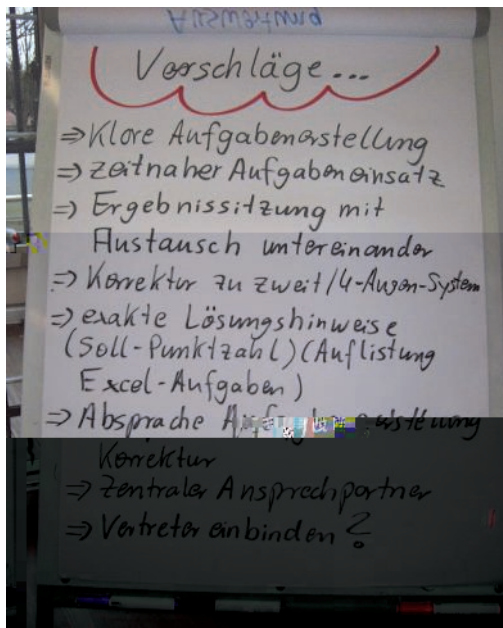 Auswertung
Vorschläge...
⇒ Klare Aufgabenerstellung
⇒ zeitnaher Aufgabeneinsatz
⇒ Ergebnissitzung mit
Austausch untereinander
⇒ Korrektur zu zweit/4-Augen-System
⇒ exakte Lösungshinweise
(Soll-Punktzahl) (Auflistung
Excel-Aufgaben)
⇒ Absprache
Korrektur
⇒ Zentraler Ansprechpartner
⇒ Vertreter einbinden?